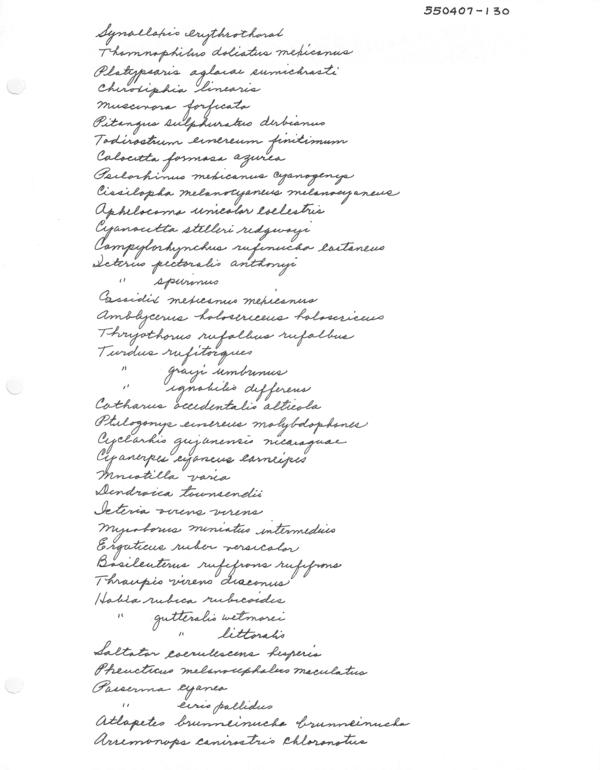 550407-130
Synallaxis erythrothorax
Thamnophilus doliatus mexicanus
Platypsaris aglaiae sumichrasti
Chiroxiphia linearis
Muscivora forficata
Pitangus sulphuratus derbianus
Todirostrum cinereum finitimum
Calocitta formosa azurea
Psilorhinus mexicanus cyanogenys
Cissilopha melanocyaneus melanocyaneus
Aphelocoma unicolor coelestris
Cyanocitta stelleri ridgwayi
Campylorhynchus rufinucha castaneus
Icterus pectoralis anthonyi
" spurious
Cassidix mexicanus mexicanus
Amblycerus holosericeus holosericeus
Thryothorus rufalbus rufalbus
Turdus rufitorques
" grayi umbrinus
" ignobilis differens
Catharus occidentalis alticola
Ptilogonys cinereus molybdophanes
Cyclarhis gujanensis nicaraguae
Cyanerpes cyaneus carneipes
Mniotilla varia
Dendroica townsendii
Icteria virens virens
Myioborus miniatus intermedius
Ergaticus ruber versicolor
Basileuterus rufifrons rufifrons
Thraupis virens diaconus
Habia rubica rubicoides
" gutteralis wetmorei
" littoralis
Saltator coerulescens hesperis
Pheucticus melanocephalus maculatus
Passerina cyanea
" ciris pallidus
Atlapetes brunneinucha brunneinucha
Arremonops conirostris chloronotus